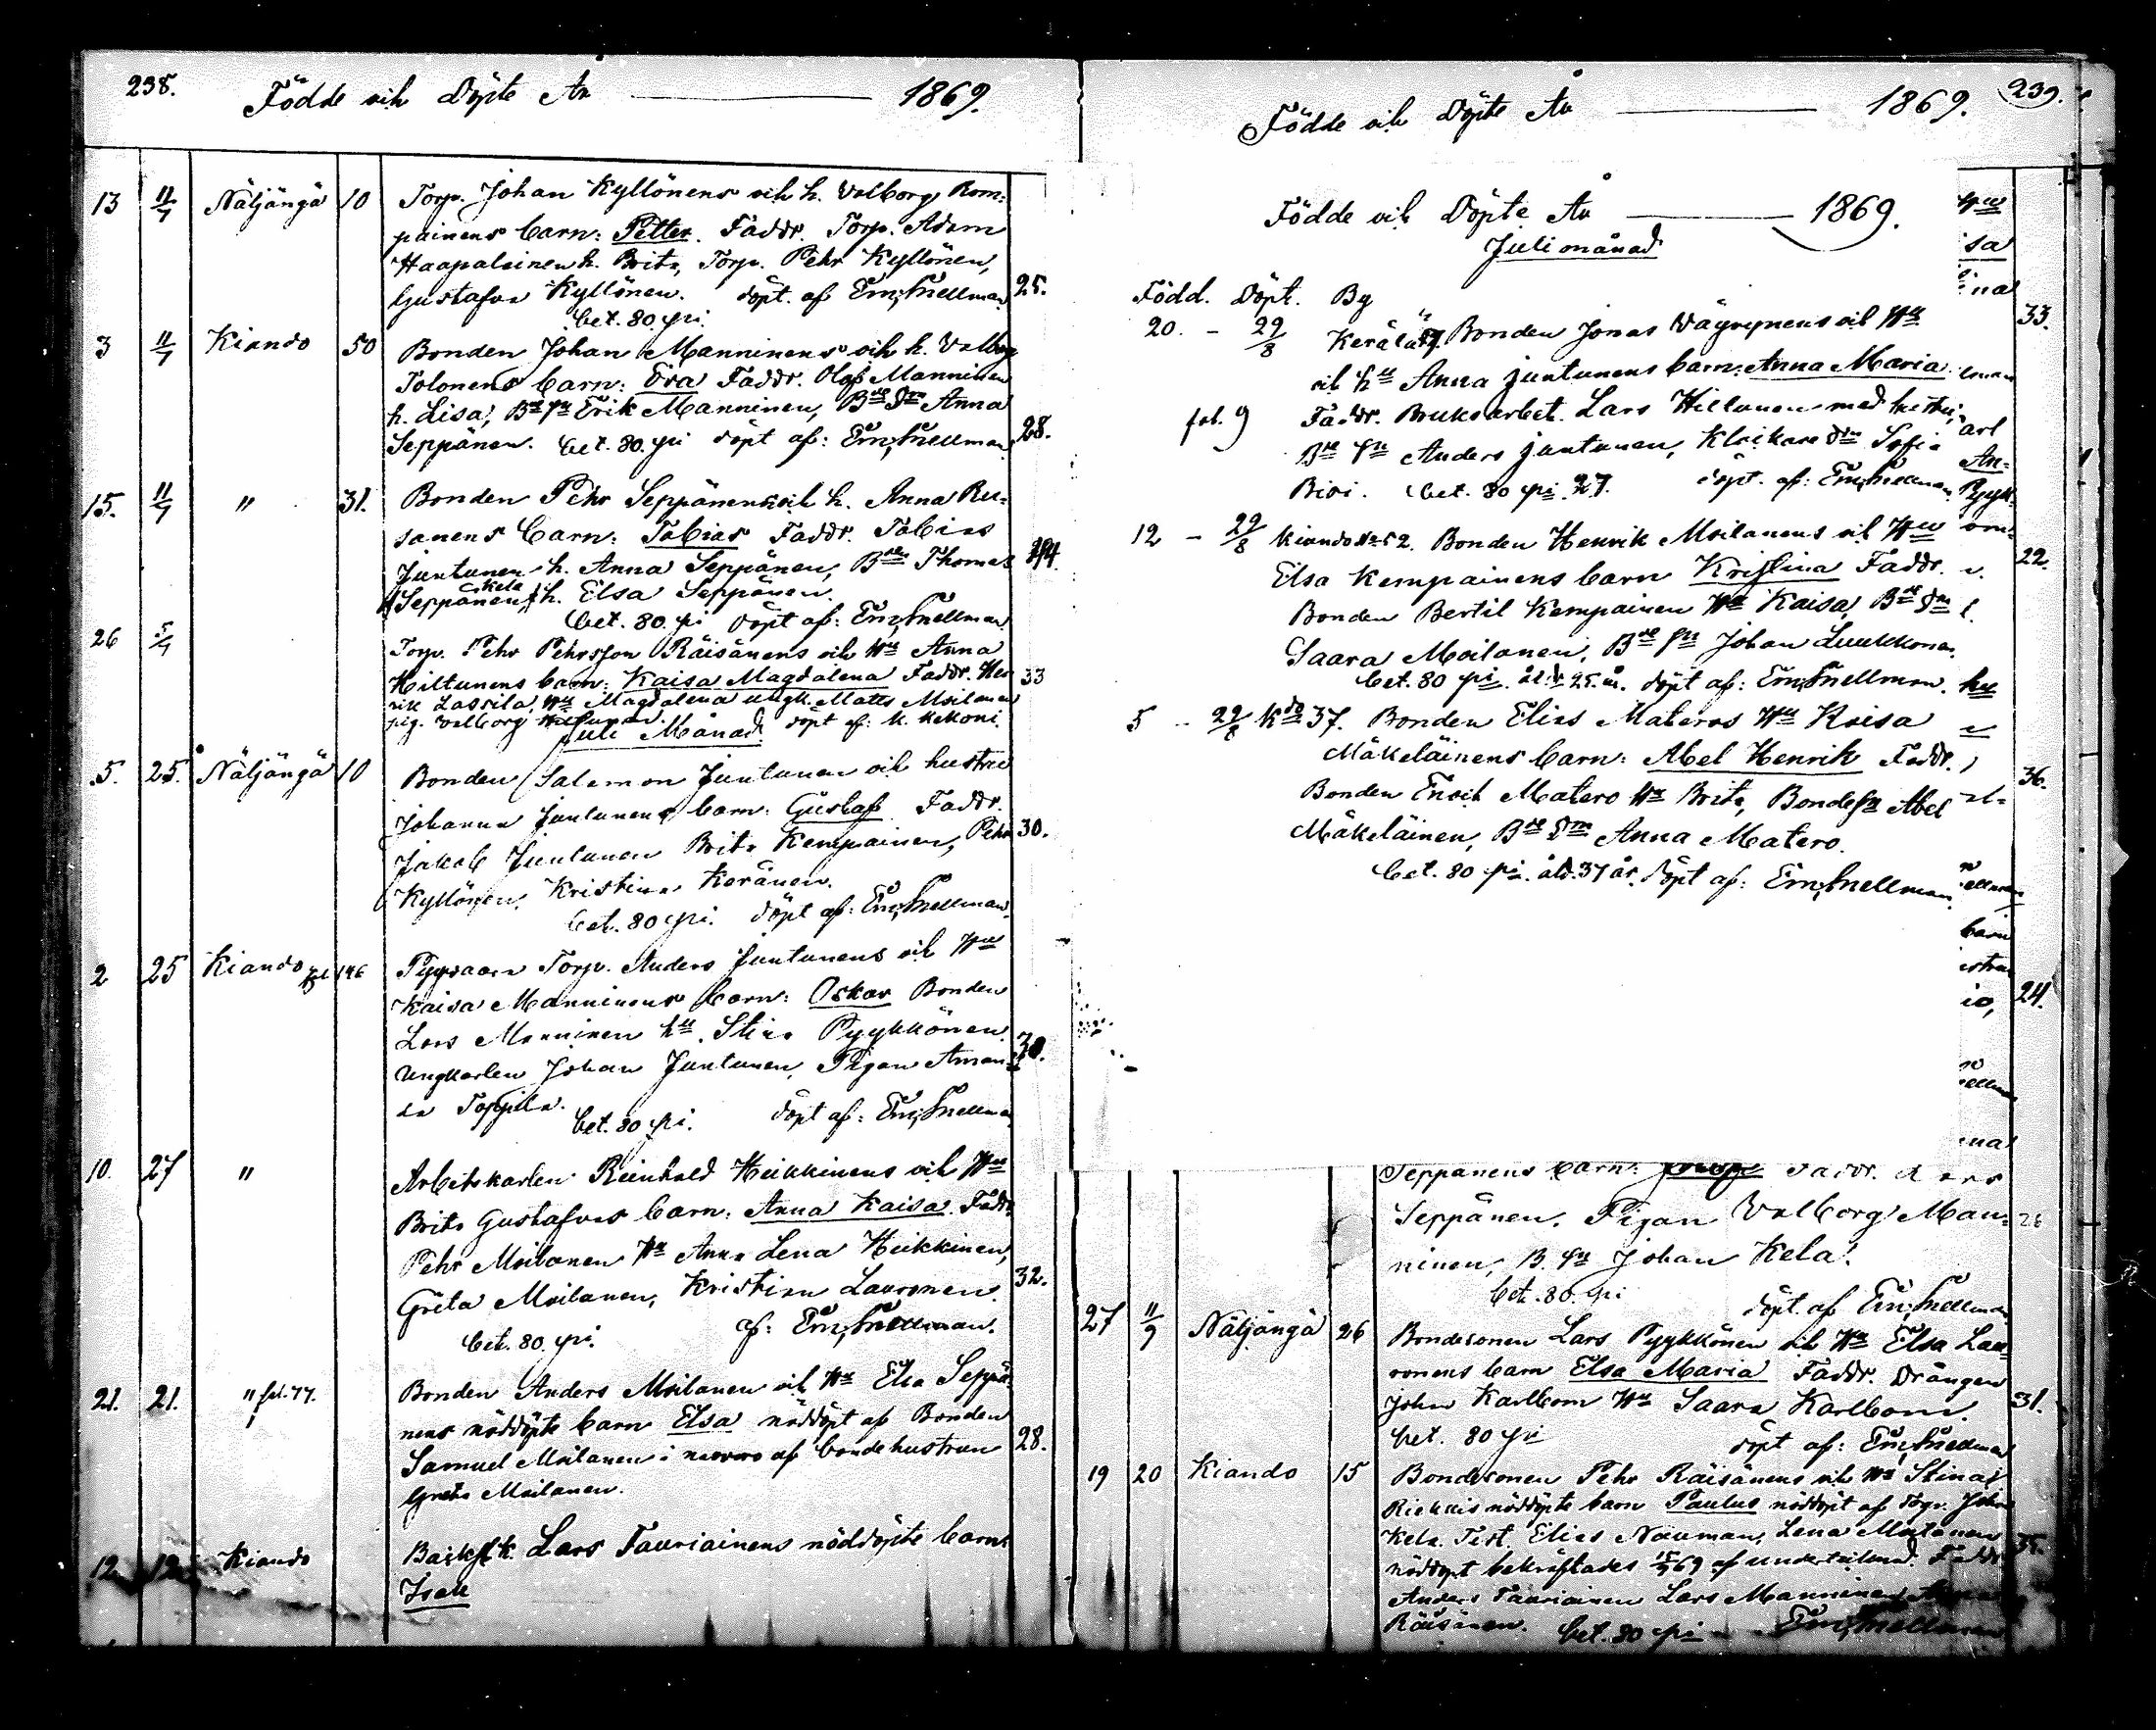 238.
Födde och Döpte År 1869.
13 11/7 Näljängä 10 Torp. Johan Kyllönens och h. Valborg Rom-
painens barn: Petter. Faddr. Torp. Adam
Haapalainen h. Brita, Torp. Pehr Kyllönen,
Gustafva Kyllönen. döpt. af Em. Snellman 25.
bet. 80 pi.
3 11/7 Kiando 50 Bonden Johan Manninens och h. Valborg
Tolonens barn: Eva Faddr. Olof Manninen
h. Lisa, Bde sn Erik Manninen, Bde dtr Anna
Seppänen. bet. 80. pi döpt af: Em. Snellman 28.
15. 11/7 " 31. Bonden Pehr Seppänens och h. Anna Ru-
sanens barn: Tobias Faddr. Tobias
Juntunen h. Anna Seppänen, Bde Thomas
Kela
Seppänen h. Elsa Seppänen.
bet. 80. pi döpt af: Em. Snellman
26 5/7 Torp. Pehr Pehrsson Räisänens och Hu Anna
Hiltunens barn: Kaisa Magdalena Faddr. Hen-
rik Lassila, Hu Magdalena ungk. Matts Moilanen 33
pig. Valborg döpt af: K. Kekoni.
Juli Månad.
5. 25. Näljängä 10 Bonden Salomon Juntunen och hustru
Johanna Juntunens barn: Gustaf Faddr.
Jakob Juntunen Brita Kempainen, Pehr 30.
Kyllönen, Kristina Keränen.
bet. 80 pi. döpt af: Em. Snellman.
2 25 Kiando 146 Pyyvaara Torp. Anders Juntunens och Hu
Kaisa Manninens barn: Oskar Bonden
Lars Manninen hu. Stina Pyykkönen
Ungkarlen Johan Juntunen, Pigan Aman- 30.
da Toppila.
bet. 80 pi. döpt af: Em. Snellman
10. 27 " Arbetskarlen Reinhold Heikkinens och Hu
Brita Gustafvas barn: Anna Kaisa. Faddr.
Pehr Moilanen Hu Anna Lena Heikkinen,
Greta Moilanen, Kristina Lauronen. 32.
bet. 80. pi. af: Em. Snellman.
21. 21. " fol. 77. Bonden Anders Moilanen och Hu Elsa Seppä-
nens nöddöpte barn Elsa nöddöpt af Bonden
Samuel Moilanen i närvaro af bondehustrun 28.
Greta Moilanen.
12 12 Kiando Lars Tauriainens nöddöpte barn
Isak
239.
Födde och Döpte År 1869.
Födde och Döpte År 1869.
Juli månad
Född. Döpt. By
20. - 29/8 Kerälä 7. Bonden Jonas Väyrynens och Hu 33.
och hu Anna Juntunens barn: Anna Maria
fol. 9 Faddr. Bruksarbet. Lars Hiltunen med hustru,
Bde sn Anders Juntunen, Klockare dtr Sofia
Bisi. bet. 80 pi. 27. döpt. af: Em. Snellman
12 - 29/8 Kiando No 52. Bonden Henrik Moilanens och Hu
Elsa Kempainens barn Kristina Faddr. 22.
Bonden Bertil Kempainen Hu Kaisa, Bde dtr
Saara Moilanen, Bde sn Johan Luukkonen
bet. 80 pi. åld. 25. år. döpt af: Em. Snellman.
5 - 29/8 Kdo 37. Bonden Elias Materos Hu Kaisa
Mäkeläinens barn: Abel Henrik Faddr.
Bonden Enok Matero Hu Brita, Bondesn Abel 36.
Mäkeläinen, Bde dtr Anna Matero.
bet. 80 pi. åld. 37 år. döpt af: Em. Snellman
24.
Seppänens barn: Faddr.
Seppänen. Pigan Valborg Man- 26
ninen, B. sn Johan Kela.
bet. 80. pi döpt af Em. Snellman
27 11/9 Näljängä 26 Bondesonen Lars Pyykkönen och Hu Elsa Lau-
ronens barn Elsa Maria Faddr. Drängen
John Karlbom Hu Saara Karlbom. 31.
bet. 80 pi döpt af: Em. Snellman
19 20 Kiando 15 Bondesonen Pehr Räisänens och Hu Stina
Riekkis nöddöpte barn Paulus nöddöpt af Torp. Johan
Kela. Test. Elias Nauman, Lena Moilanen
nöddopt bekräftades 69 af undertecknad. Faddr 35.
Anders Tauriainen Lars Manninen
Räisänen. bet. 80 pi Em. Snellman